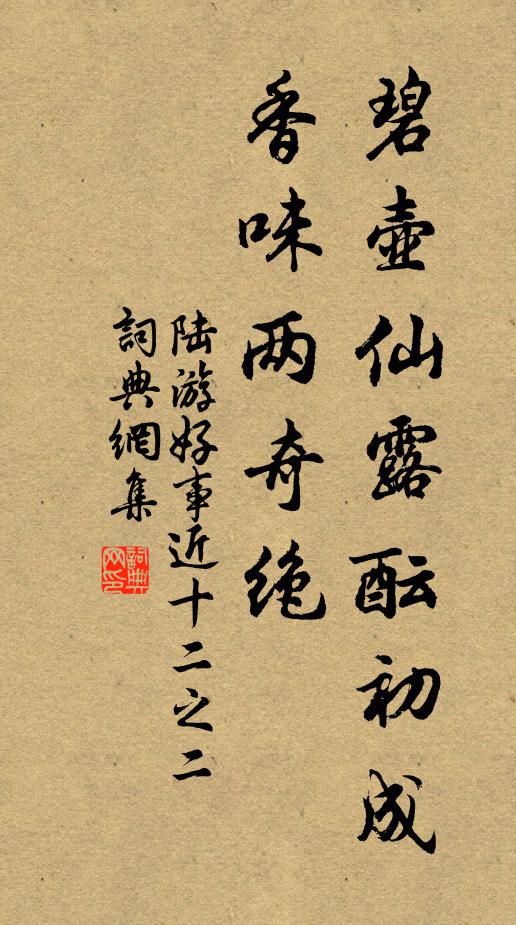 碧壺仙露酝初成
香味两奇绝
陆游好事近十二之二
詞典網集
詞典网印